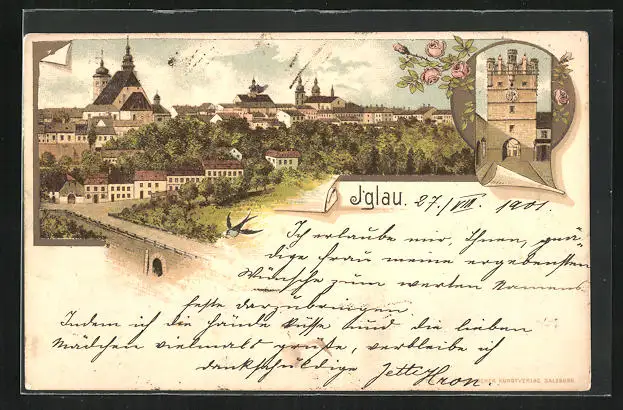 Iglau. 27./VIII. 1901.
Ich erlaube mir, Ihnen, gnä-
dige Frau meine ergebensten
Wünsche zum werten Namens
feste darzubringen
Indem ich die Hände küsse und die lieben
Mädchen vielmals grüße, verbleibe ich
dankschuldige Jetti Hron.
KUNSTVERLAG SALZBURG.